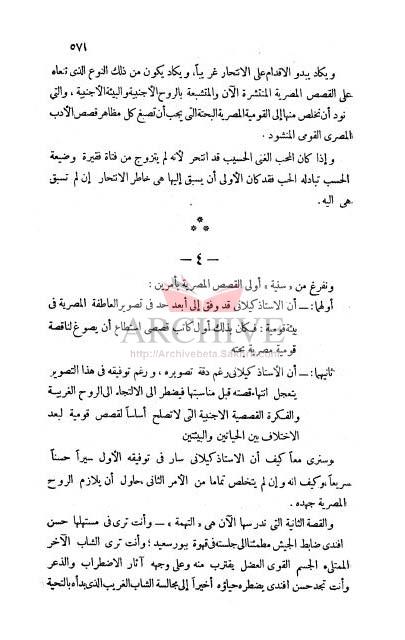 ٥٧١
ويكاد يبدو الاقدام على الانتحار غريباً، ويكاد يكون من ذلك النوع الذى ننعاه
على القصص المصرية المنتشرة الآن والمتشبعة بالروح الأجنبية والبيئة الأجنبية، والتي
نود أن نخلص منها إلى القومية المصرية البحتة التي يجب أن تصبغ كل مظاهر قصص الأدب
المصرى القومى المنشود.
وإذا كان المحب الغنى الحسيب قد انتحر لأنه لم يتزوج من فتاة فقيرة وضيعة
الحسب تبادله الحب فقد كان الأولى أن يسبق إليها هى خاطر الانتحار إن لم تسبق
هى اليه.
***
— ٤ —
ونفرغ من «سنية» أولى القصص المصرية بأمرين:
أولهما:— أن الاستاذ كيلانى قد وفق إلى أبعد حد فى تصوير العاطفة المصرية فى
بيئة قومية: فكان بذلك أول كاتب قصصى استطاع أن يصوغ لنا قصة
قومية مصرية بحته
ثانيهما:— أن الأستاذ كيلانى رغم دقة تصويره، ورغم توفيقه فى هذا التصوير
يتعجل انتهاء قصته قبل مناسبتها فيضطر الى الالتجاء الى الروح الغربية
والفكرة القصصية الاجنبية التى لا تصلح أساساً لقصص قومية لبعد
الاختلاف بين الحياتين والبيئتين
وسنرى معاً كيف أن الاستاذ كيلانى سار فى توفيقه الأول سيراً حسناً
سريعاً، وكيف انه وإن لم يتخلص تماما من الأمر الثانى حاول أن يلازم الروح
المصرية جهده.
والقصة الثانية التى ندرسها الآن هى «التهمة» — وأنت ترى فى مستهلها حسن
افندى ضابط الجيش مطمئنا الى جلسته فى قهوة ببورسعيد؛ وأنت ترى الشاب الآخر
الممتلىء الجسم القوى العضل يقترب منه وعلى وجهه آثار الاضطراب والذعر
وأنت تجد حسن افندى يضطره حياؤه أخيراً إلى مجالسة الشاب الغريب الذى بدأه بالتحية
ARCHIVE
http://Archivebeta.Sakhrit.com